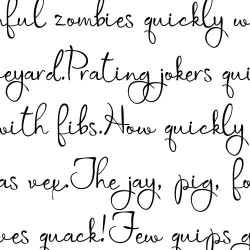 ful zombies quickly
eyard.Prating jokers qui
with fibs.How quickly
as vex.The jay, pig, fo
ves quack!Few quips